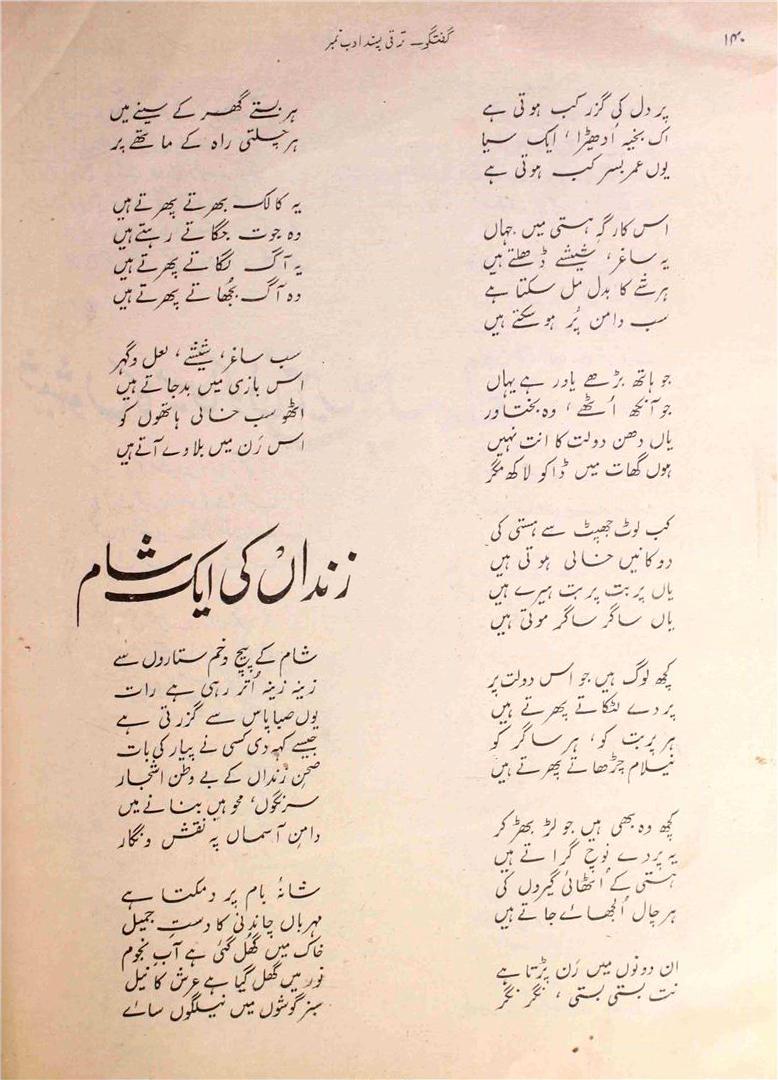 ۱۴۰
گفتگو۔ ترقی پسند ادب نمبر
پر دل کی گزر کب ہوتی ہے
اک بخیہ اُدھیڑا، ایک سیا
یوں عمر بسر کب ہوتی ہے
اس کارگہِ ہستی میں جہاں
یہ ساغر، شیشے ڈھلتے ہیں
ہر شے کا بدل مل سکتا ہے
سب دامن پُر ہو سکتے ہیں
جو ہاتھ بڑھے یاور ہے یہاں
جو آنکھ اُٹھے، وہ بختاور
یاں دھن دولت کا انت نہیں
ہوں گھات میں ڈاکو لاکھ مگر
کب لوٹ جھپٹ سے ہستی کی
دوکانیں خالی ہوتی ہیں
یاں پربت پربت ہیرے ہیں
یاں ساگر ساگر موتی ہیں
کچھ لوگ ہیں جو اس دولت پر
پردے لٹکاتے پھرتے ہیں
ہر پربت کو، ہر ساگر کو
نیلام چڑھاتے پھرتے ہیں
کچھ وہ بھی ہیں جو لڑ بھڑ کر
یہ پردے نوچ گراتے ہیں
ہستی کے اُٹھائی گیروں کی
ہر چال اُلجھائے جاتے ہیں
ان دونوں میں رَن پڑتا ہے
نت بستی بستی، نگر نگر
ہر بستے گھر کے سینے میں
ہر چلتی راہ کے ماتھے پر
یہ کالک بھرتے پھرتے ہیں
وہ جوت جگاتے رہتے ہیں
یہ آگ لگاتے پھرتے ہیں
وہ آگ بُجھاتے پھرتے ہیں
سب ساغر، شیشے، لعل و گہر
اس بازی میں بد جاتے ہیں
اٹھو سب خالی ہاتھوں کو
اس رَن میں بلاوے آتے ہیں
زنداں کی ایک شام
شام کے پیچ و خم ستاروں سے
زینہ زینہ اُتر رہی ہے رات
یوں صبا پاس سے گزرتی ہے
جیسے کہہ دی کسی نے پیار کی بات
صحنِ زنداں کے بے وطن اشجار
سرنگوں، محو ہیں بنانے میں
دامنِ آسماں پہ نقش و نگار
شانۂ بام پر دمکتا ہے
مہرباں چاندنی کا دستِ جمیل
خاک میں گھُل گئی ہے آبِ نجوم
نور میں گھل گیا ہے عرش کا نیل
سبز گوشوں میں نیلگوں سائے